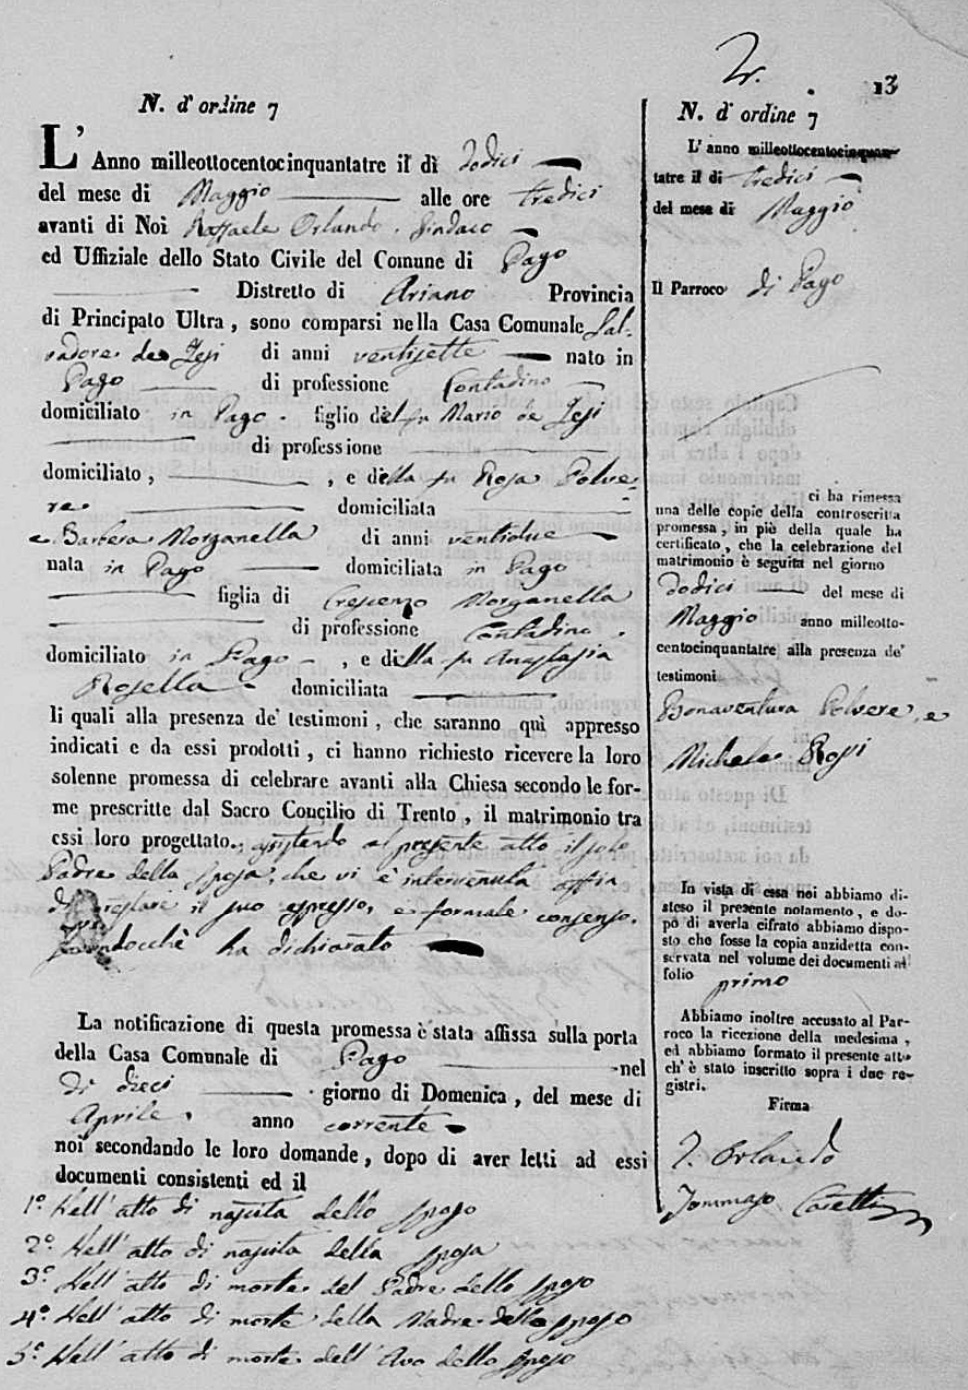 2.
13
N. d' ordine 7
L' Anno milleottocentocinquantatre il dì Dodici
del mese di Maggio alle ore tredici
avanti di Noi Raffaele Orlando Sindaco
ed Uffiziale dello Stato Civile del Comune di Pago
Distretto di Ariano Provincia
di Principato Ultra, sono comparsi nella Casa Comunale Sal-
vadore de Jesi di anni ventisette nato in
Pago di professione Contadino
domiciliato in Pago figlio del fu Mario de Jesi
di professione
domiciliato, , e della fu Rosa Polve-
re domiciliata
e Barbera Morganella di anni ventidue
nata in Pago domiciliata in Pago
figlia di Crescenzo Morganella
di professione Contadino
domiciliato in Pago , e della fu Anastasia
Rosella domiciliata
li quali alla presenza de' testimoni, che saranno quì appresso
indicati e da essi prodotti, ci hanno richiesto ricevere la loro
solenne promessa di celebrare avanti alla Chiesa secondo le for-
me prescritte dal Sacro Concilio di Trento, il matrimonio tra
essi loro progettato., assistendo al presente atto il solo
Padre della sposa, che vi è intervenuto
il suo espresso, e formale consenso.
ha dichiarato
La notificazione di questa promessa è stata affissa sulla porta
della Casa Comunale di Pago nel
dì dieci giorno di Domenica, del mese di
Aprile anno corrente
noi secondando le loro domande, dopo di aver letti ad essi
documenti consistenti ed il
1.° Nell' atto di nascita dello sposo
2.° Nell' atto di nascita della sposa
3.° Nell' atto di morte del Padre dello sposo
4.° Nell' atto di morte della Madre dello sposo
5.° Nell' atto di morte dell' Avo dello sposo
N. d' ordine 7
L' anno milleottocentocinquan-
tatre il di tredici
del mese di Maggio
Il Parroco di Pago
ci ha rimessa
una delle copie della controscritta
promessa, in piè della quale ha
certificato, che la celebrazione del
matrimonio è seguita nel giorno
dodici del mese di
Maggio anno milleotto-
centocinquantatre alla presenza de'
testimoni
Bonaventura Polvere, e
Michele Rossi
In vista di essa noi abbiamo di-
steso il presente notamento, e do-
po di averla cifrato abbiamo dispo-
sto che fosse la copia anzidetta con-
servata nel volume dei documenti al
folio primo
Abbiamo inoltre accusato al Par-
roco la ricezione della medesima,
ed abbiamo formato il presente atto
ch' è stato inscritto sopra i due re-
gistri.
Firma
Orlando
Tommaso